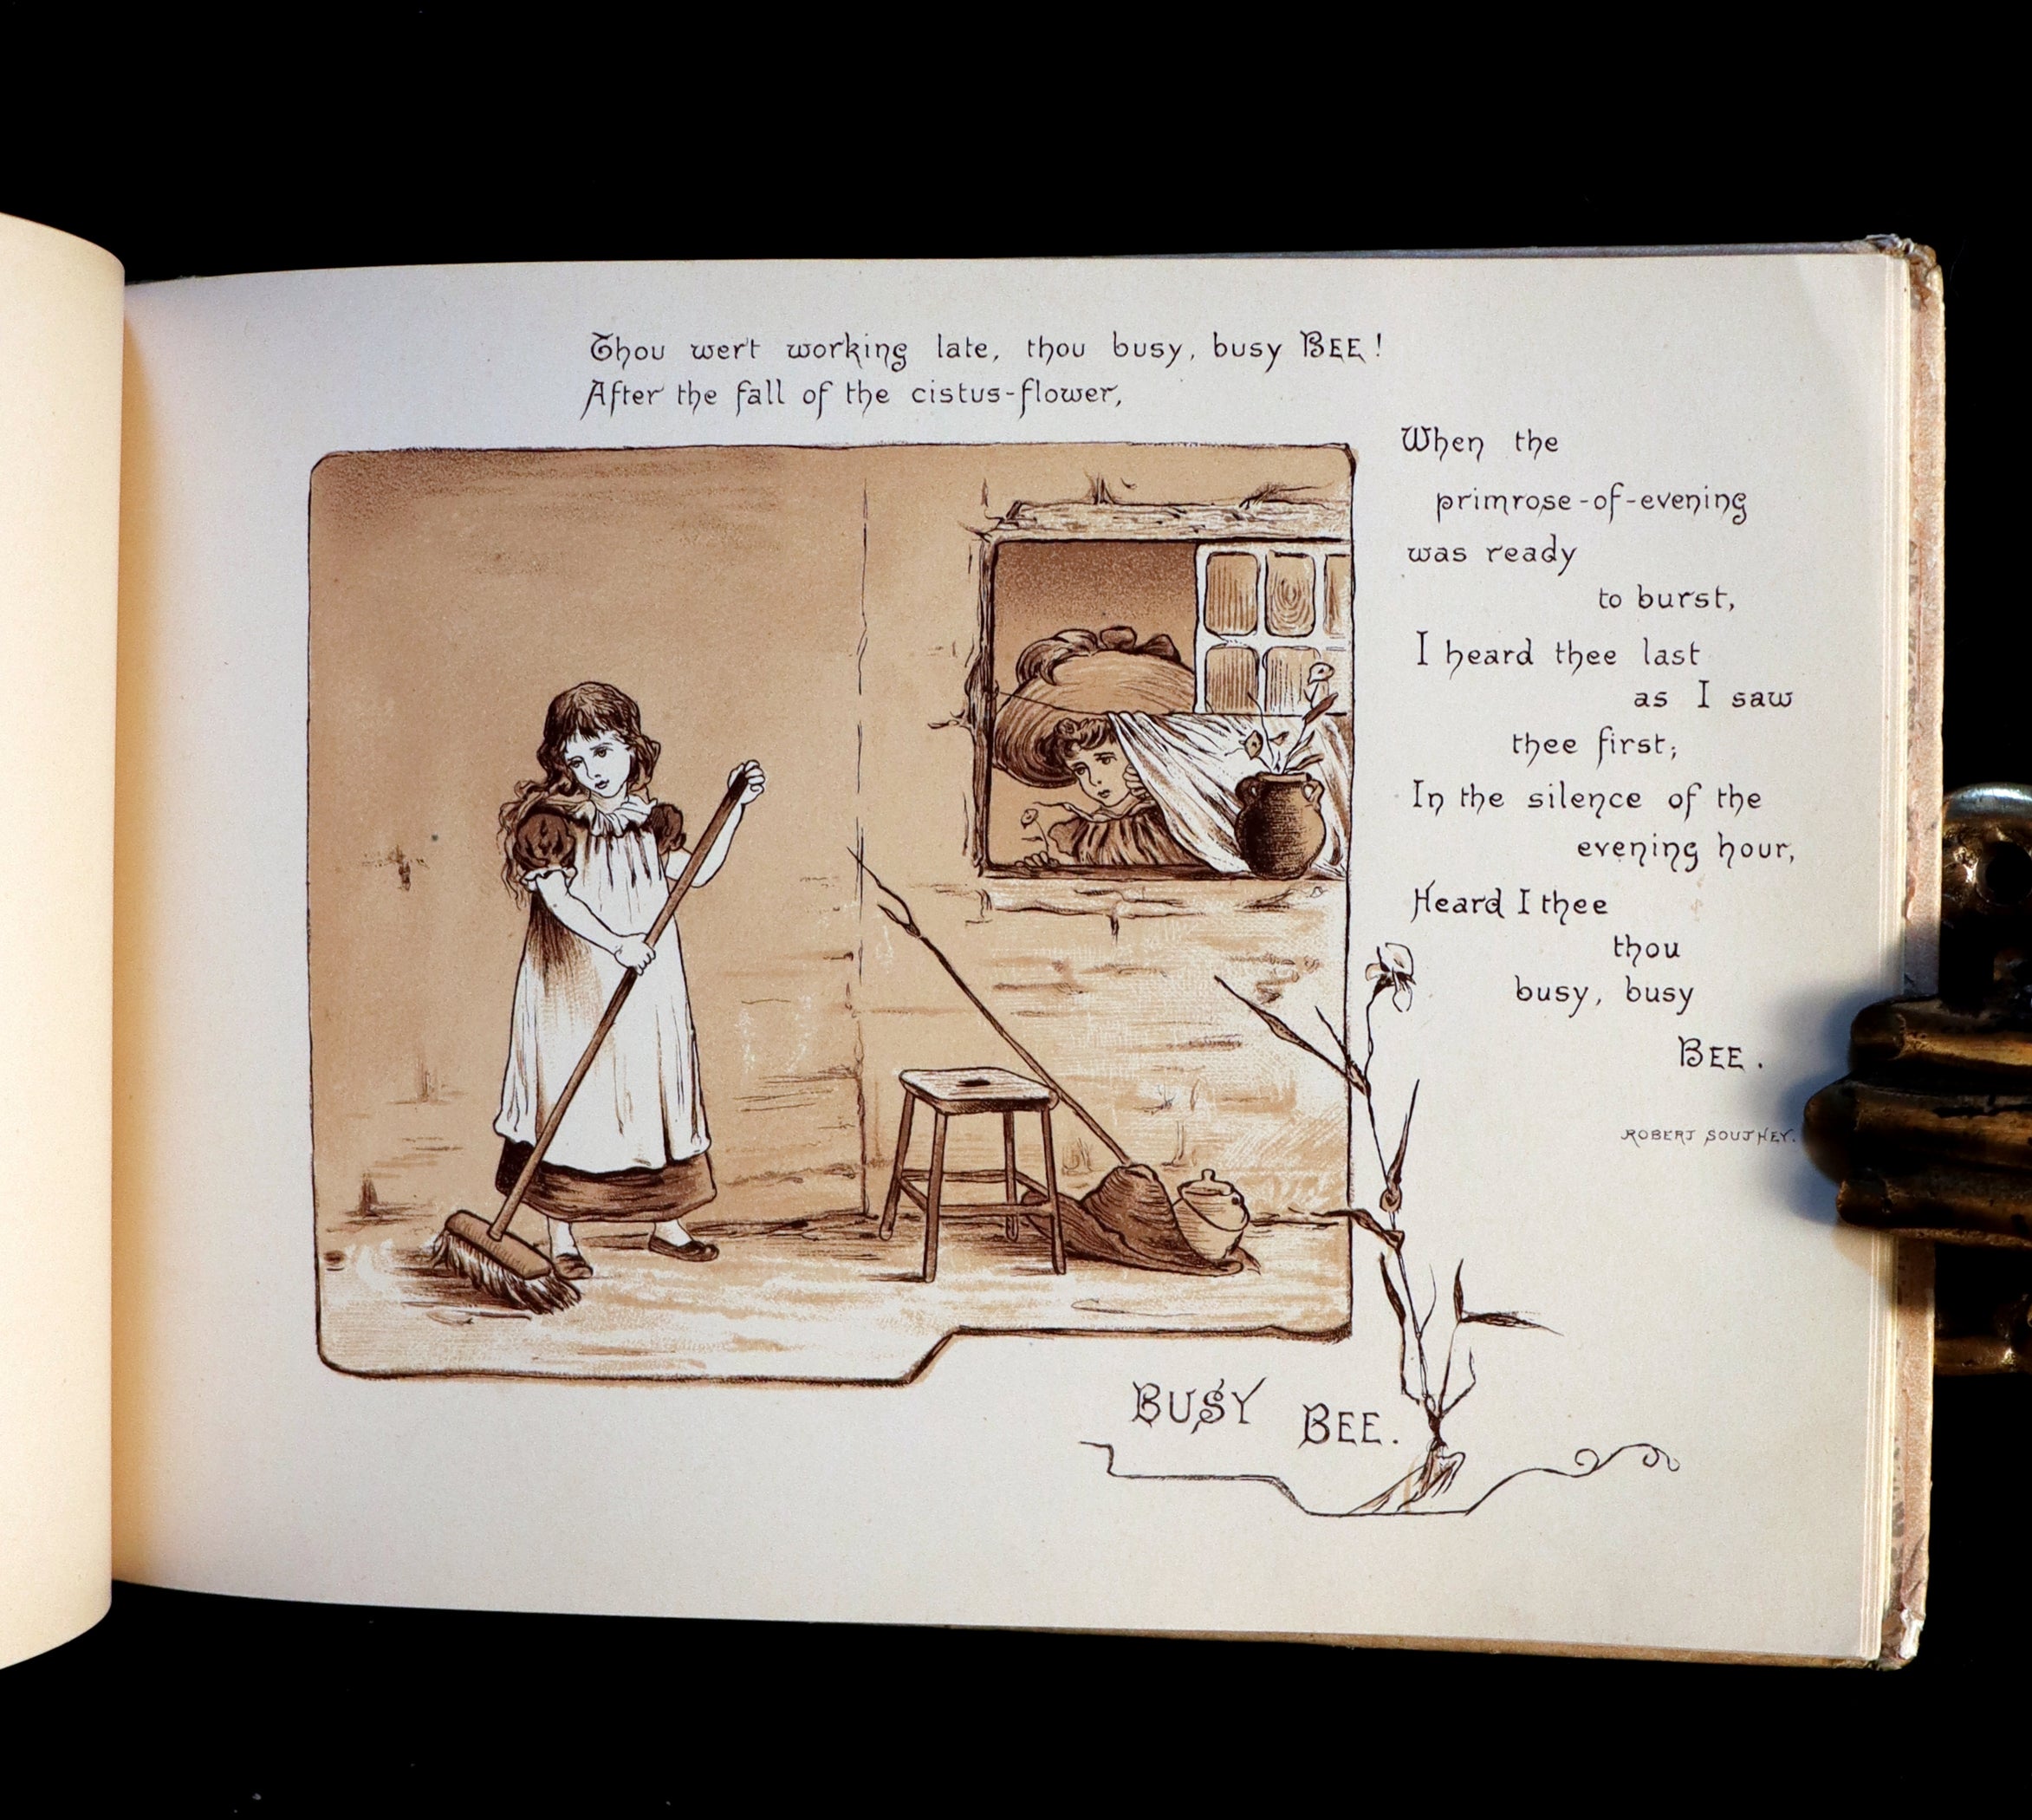 Thou wert working late, thou busy, busy BEE!
After the fall of the cistus-flower,
When the
primrose-of-evening
was ready
to burst,
I heard thee last
as I saw
thee first;
In the silence of the
evening hour,
Heard I thee
thou
busy, busy
BEE.
ROBERT SOUTHEY.
BUSY BEE.